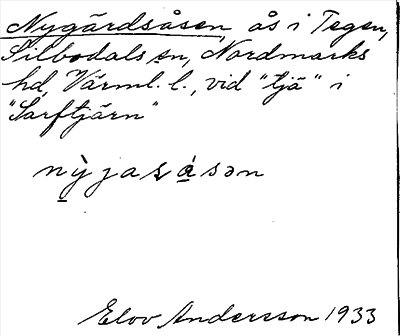 Nygårdsåsen, ås i Tegen,
Silbodals sn, Nordmarks
hd, Värml. l., vid "tjä" i
"Sarftjärn"
nỳjasåsən
Elov Andersson 1933